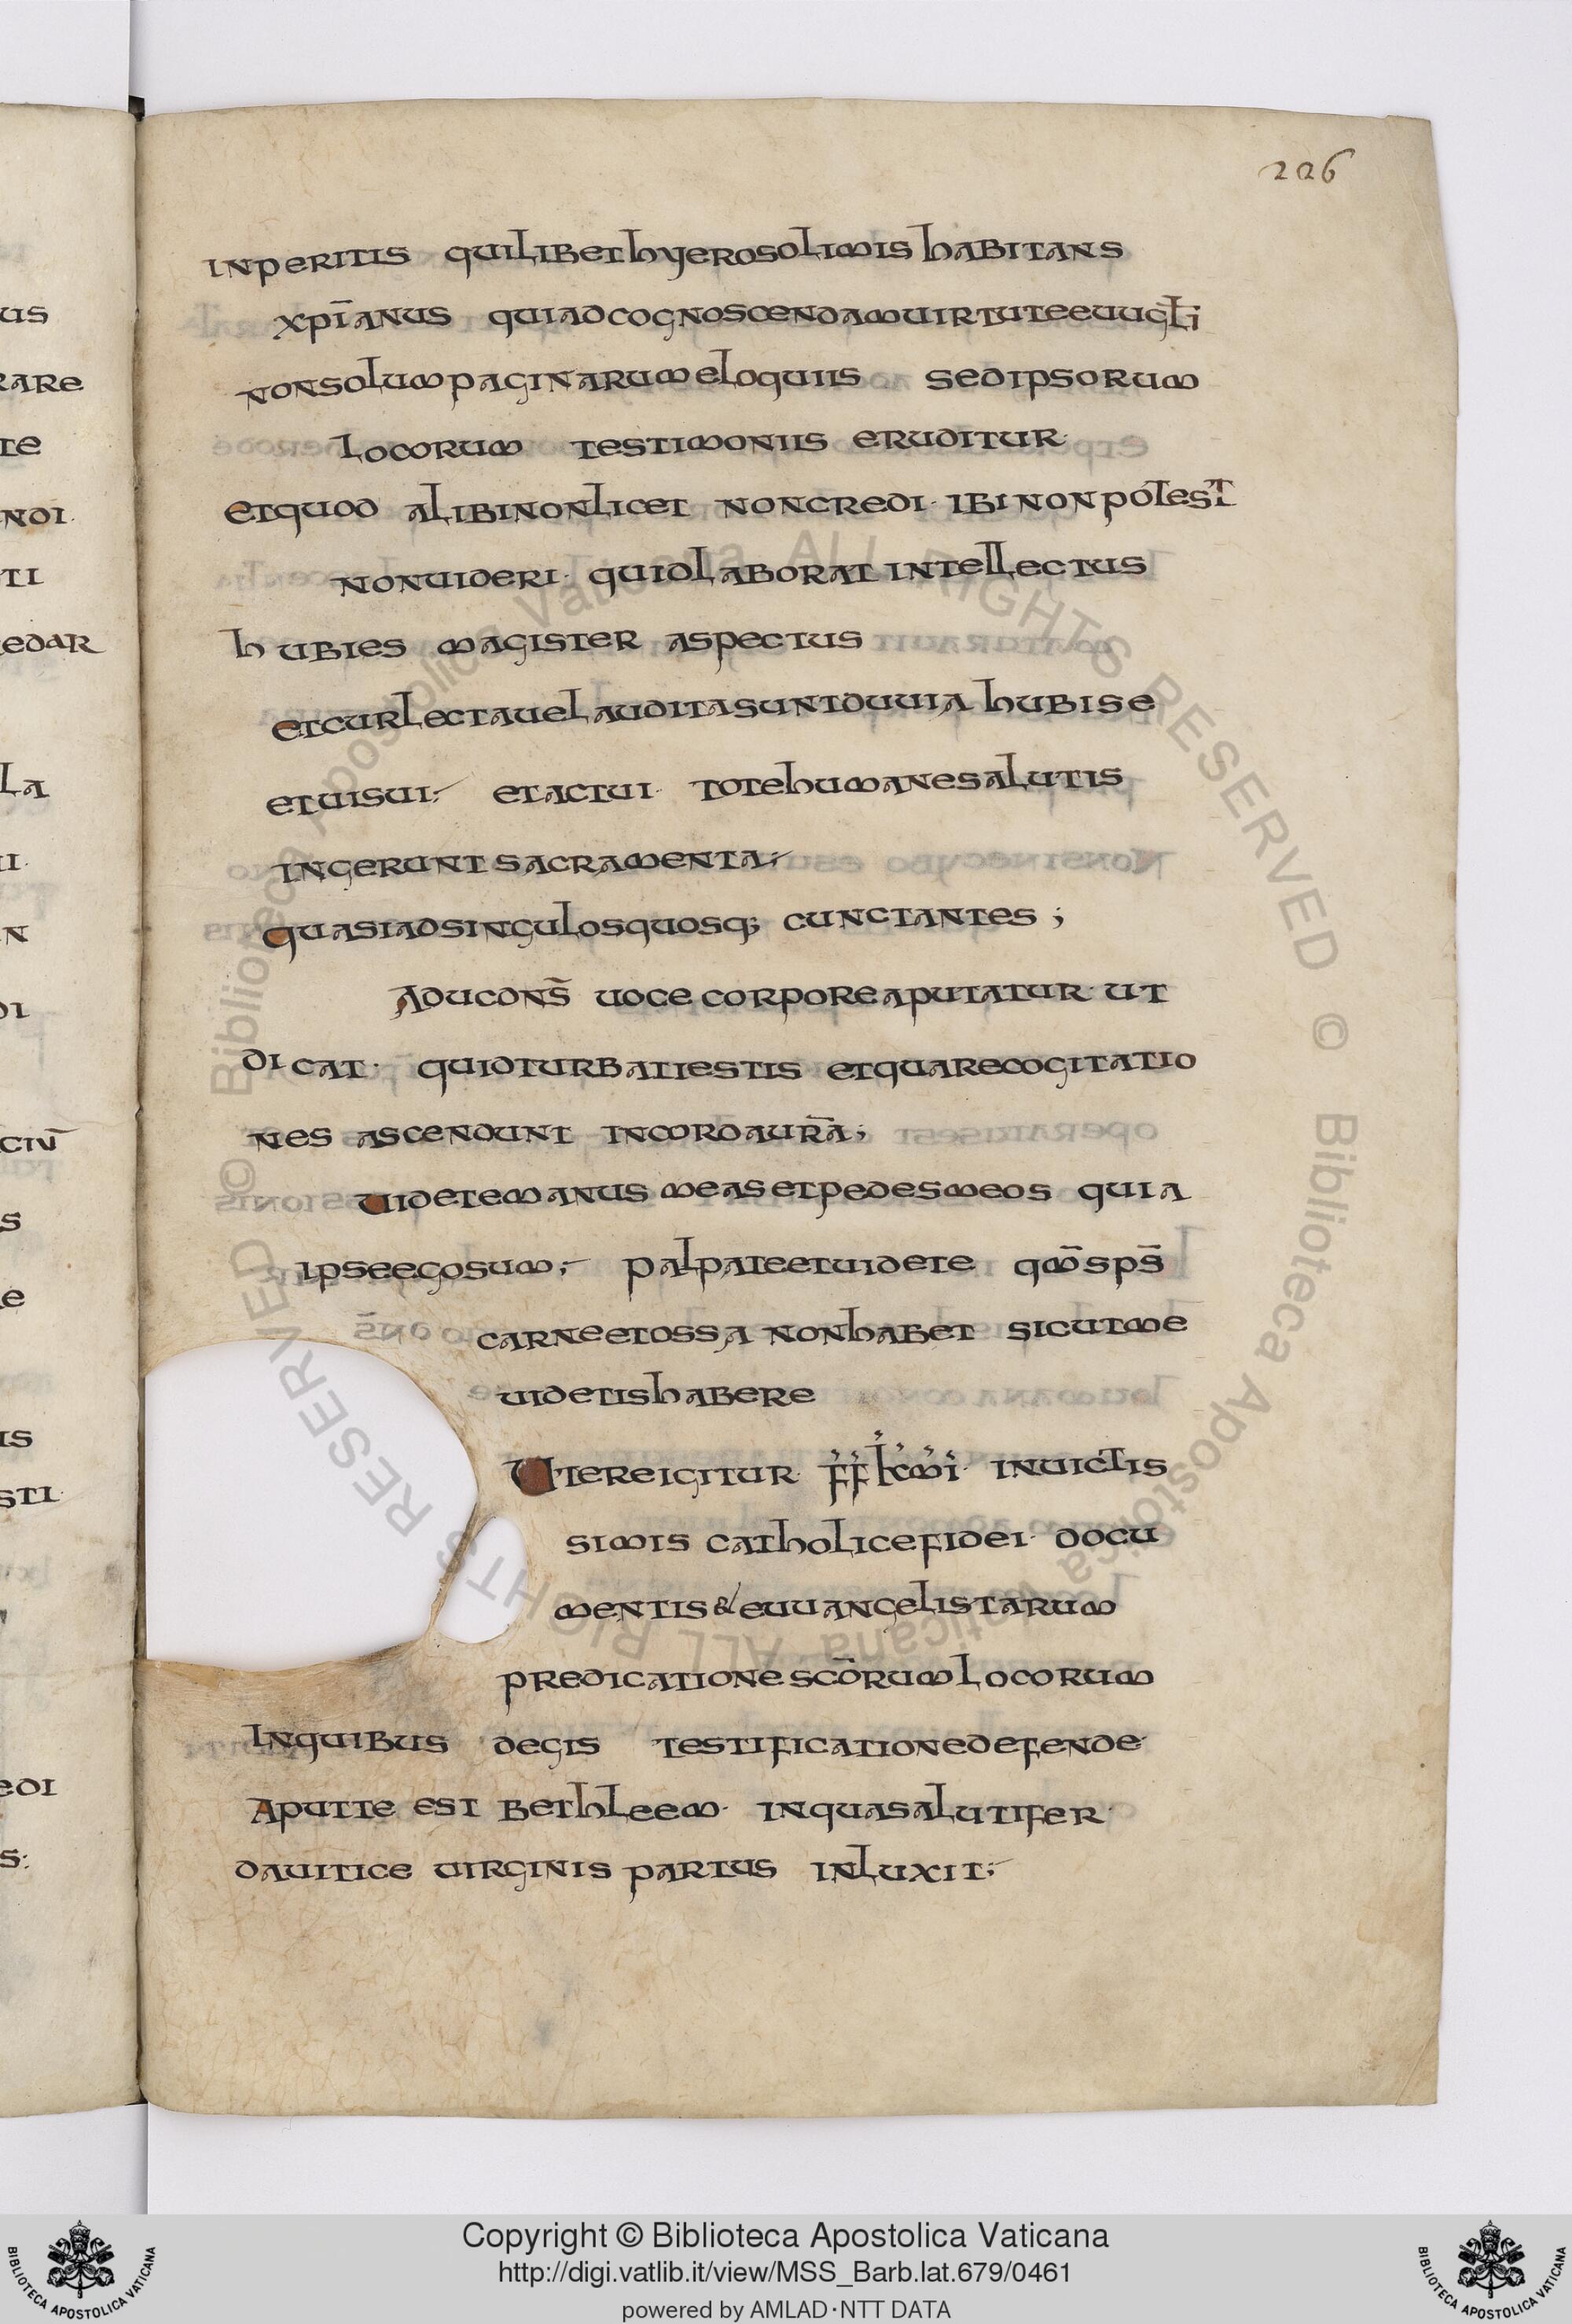 226
INPERITIS QUILIBET hYEROSOLIMIS hABITANS
XPĪANUS QUIADCOGNOSCENDAMUIRTUTEEUUGŁI
NONSOLUMPAGINARUMELOQUIIS SEDIPSORUM
LOCORUM TESTIMONIIS ERUDITUR·
ETQUOD ALIBINONLICET NONCREDI· IBINONPOTEST
NONUIDERI· QUIDLABORAT INTELLECTUS
hUBIES MAGISTER ASPECTUS
ETCURLECTAUELAUDITASUNTDUUIA hUBISE
ETUISUI; ETACTUI· TOTEhUMANESALUTIS
INGERUNTSACRAMENTA;
QUASIADSINGULOSQUOSQ; CUNCTANTES;
ADUCDNS̄ UOCECORPOREAPUTATUR· UT
DICAT· QUIDTURBATIESTIS ETQUARECOGITATIO
NES ASCENDUNT INCORDAUR̄A;
UIDETEMANUSMEASETPEDESMEOS QUIA
IPSEEGOSUM; PALPATEETUIDETE QM̄SPS̄
CARNEETOSSA NONhABET SICUTME
UIDETIShABERE
UTEREIGITUR· FFKMI· INUICTIS
SIMIS CATHOLICEFIDEI· DOCU
MENTIS&EUUANGELISTARUM
PREDICATIONESCŌRUMLOCORUM
INQUIBUS DEGIS TESTIFICATIONEDEFENDE·
APUTTE EST BETHLEEM· INQUASALUTIFER·
DAUITICE UIRGINIS PARTUS INLUXIT;
us
RARE
TE
NDI·
TI
EDAR
LA
II·
N
DI
CIŪ
S
E
IS
STI·
EDI
S:
© Biblioteca Apostolica Vaticana ALL RIGHTS RESERVED © Biblioteca Apostolica Vaticana ALL RIGHTS RESERVED
Copyright © Biblioteca Apostolica Vaticana
http://digi.vatlib.it/view/MSS_Barb.lat.679/0461
powered by AMLAD·NTT DATA
BIBLIOTECA APOSTOLICA VATICANA
BIBLIOTECA APOSTOLICA VATICANA